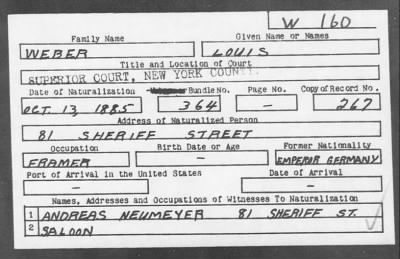 W 160
Family Name Given Name or Names
WEBER LOUIS
Title and Location of Court
SUPERIOR COURT, NEW YORK COUNTY.
Date of Naturalization Bundle No. Page No. Copy of Record No.
OCT. 13, 1885 364 - 267
Address of Naturalized Person
81 SHERIFF STREET
Occupation Birth Date or Age Former Nationality
FRAMER - EMPEROR GERMANY
Port of Arrival in the United States Date of Arrival
- -
Names, Addresses and Occupations of Witnesses To Naturalization
1 ANDREAS NEUMEYER 81 SHERIFF ST.
2 SALOON